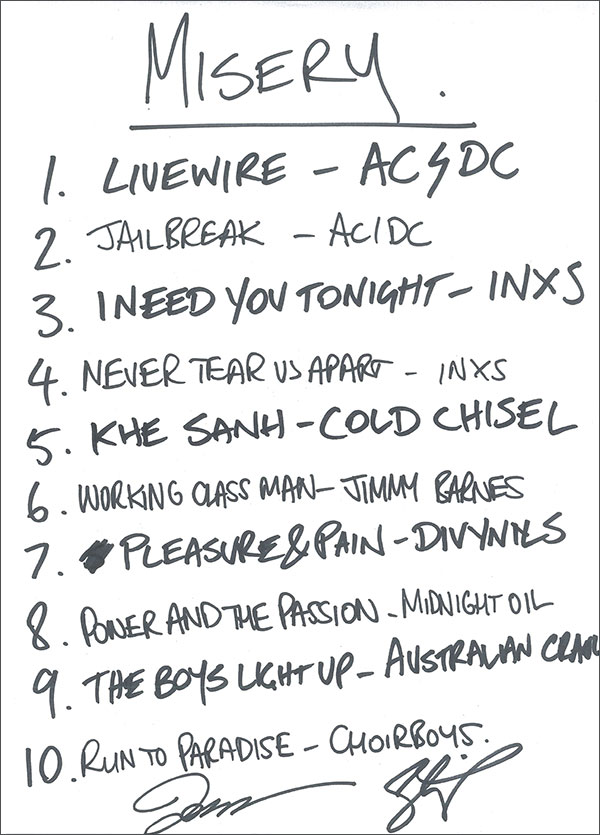 MISERY.
1. LIVEWIRE - AC⚡DC
2. JAILBREAK - AC/DC
3. I NEED YOU TONIGHT - INXS
4. NEVER TEAR US APART - INXS
5. KHE SANH - COLD CHISEL
6. WORKING CLASS MAN - JIMMY BARNES
7. PLEASURE & PAIN - DIVYNYLS
8. POWER AND THE PASSION - MIDNIGHT OIL
9. THE BOYS LIGHT UP - AUSTRALIAN CRAWL
10. RUN TO PARADISE - CHOIRBOYS.